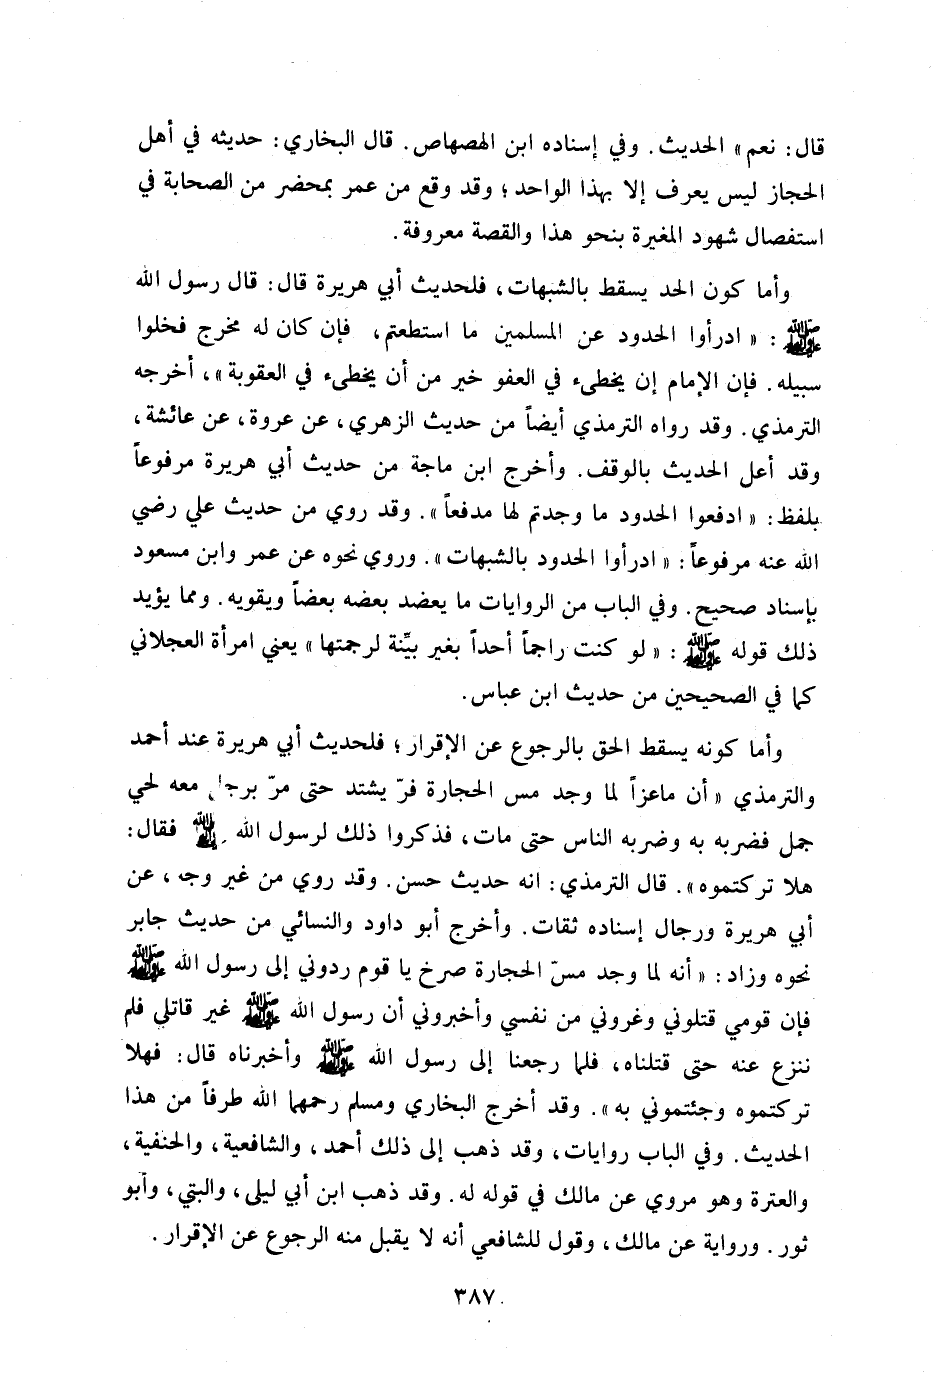 قال: نعم» الحديث. وفي إسناده ابن الهصهاص. قال البخاري: حديثه في أهل
الحجاز ليس يعرف إلا بهذا الواحد؛ وقد وقع من عمر بمحضر من الصحابة في
استفصال شهود المغيرة بنحو هذا والقصة معروفة.
وأما كون الحد يسقط بالشبهات، فلحديث أبي هريرة قال: قال رسول الله
ﷺ: «ادرأوا الحدود عن المسلمين ما استطعتم، فإن كان له مخرج فخلوا
سبيله. فإن الإمام إن يخطىء في العفو خير من أن يخطىء في العقوبة»، أخرجه
الترمذي. وقد رواه الترمذي أيضاً من حديث الزهري، عن عروة، عن عائشة،
وقد أعل الحديث بالوقف. وأخرج ابن ماجة من حديث أبي هريرة مرفوعاً
بلفظ: «ادفعوا الحدود ما وجدتم لها مدفعاً». وقد روي من حديث علي رضي
الله عنه مرفوعاً: «ادرأوا الحدود بالشبهات». وروي نحوه عن عمر وابن مسعود
بإسناد صحيح. وفي الباب من الروايات ما يعضد بعضه بعضاً ويقويه. ومما يؤيد
ذلك قوله ﷺ: «لو كنت راجماً أحداً بغير بيِّنة لرجمتها» يعني امرأة العجلاني
كما في الصحيحين من حديث ابن عباس.
وأما كونه يسقط الحق بالرجوع عن الإقرار؛ فلحديث أبي هريرة عند أحمد
والترمذي «أن ماعزاً لما وجد مس الحجارة فرّ يشتد حتى مرّ برجل معه لحي
جمل فضربه به وضربه الناس حتى مات، فذكروا ذلك لرسول الله ﷺ فقال:
هلا تركتموه». قال الترمذي: انه حديث حسن. وقد روي من غير وجه، عن
أبي هريرة ورجال إسناده ثقات. وأخرج أبو داود والنسائي من حديث جابر
نحوه وزاد: «أنه لما وجد مسّ الحجارة صرخ يا قوم ردوني إلى رسول الله ﷺ
فإن قومي قتلوني وغروني من نفسي وأخبروني أن رسول الله ﷺ غير قاتلي فلم
ننزع عنه حتى قتلناه، فلما رجعنا إلى رسول الله ﷺ وأخبرناه قال: فهلا
تركتموه وجئتموني به». وقد أخرج البخاري ومسلم رحمهما الله طرفاً من هذا
الحديث. وفي الباب روايات، وقد ذهب إلى ذلك أحمد، والشافعية، والحنفية،
والعترة وهو مروي عن مالك في قوله له. وقد ذهب ابن أبي ليلى، والبتي، وأبو
ثور. ورواية عن مالك، وقول للشافعي أنه لا يقبل منه الرجوع عن الإقرار.
٣٨٧